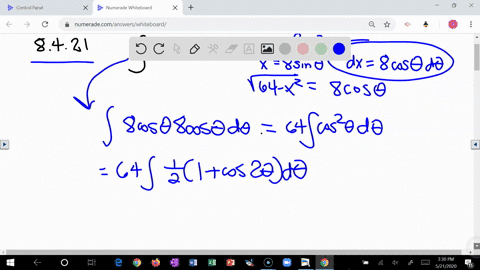 Control Panel
Numerade Whiteboard
numerade.com/answers/whiteboard/
8.4.21 ∫
x = 8sinθ dx = 8cosθ dθ
√64-x² = 8cosθ
∫ 8cosθ 8cosθ dθ = 64∫cos²θ dθ
= 64∫ 1/2 (1+cos2θ)dθ
3:38 PM
5/21/2020